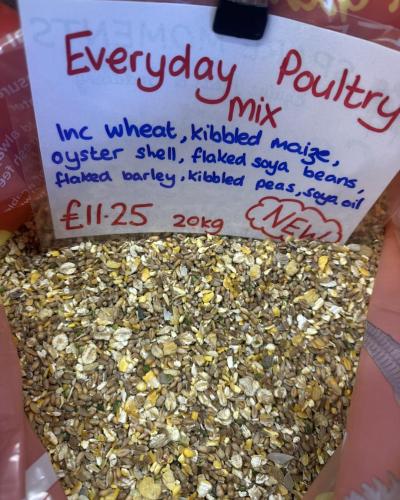 Everyday Poultry
mix
Inc wheat, kibbled maize,
oyster shell, flaked soya beans,
flaked barley, kibbled peas, soya oil
£11.25 20kg NEW